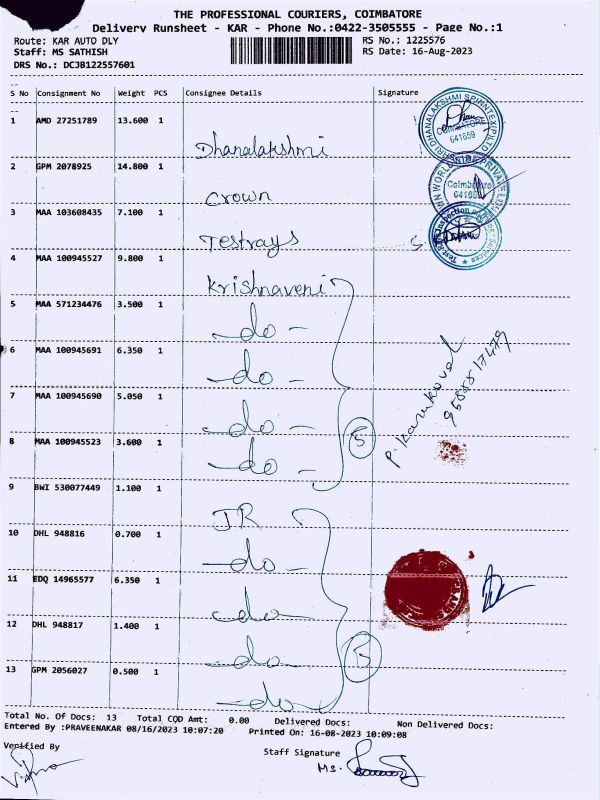 THE PROFESSIONAL COURIERS, COIMBATORE
Delivery Runsheet - KAR - Phone No.:0422-3505555 - Page No.:1
Route: KAR AUTO DLY RS No.: 1225576
Staff: MS SATHISH RS Date: 16-Aug-2023
DRS No.: DCJB122557601
S No Consignment No Weight PCS Consignee Details Signature
1 AMD 27251789 13.600 1 Dhanalakshmi
COIMBATORE
641659
2 GPM 2078925 14.800 1 Crown
Coimbatore
3 MAA 103608435 7.100 1 Testrays
4 MAA 100945527 9.800 1 Krishnaveni
5 MAA 571234476 3.500 1 -do-
6 MAA 100945691 6.350 1 -do-
7 MAA 100945690 5.050 1 -do-
8 MAA 100945523 3.600 1 -do-
5
9 BWI 530077449 1.100 1 JR
10 DHL 948816 0.700 1 -do-
11 EDQ 14965577 6.350 1 -do-
12 DHL 948817 1.400 1 -do-
13 GPM 2056027 0.500 1 -do-
5
Total No. Of Docs: 13 Total COD Amt: 0.00 Delivered Docs: Non Delivered Docs:
Entered By :PRAVEENAKAR 08/16/2023 10:07:20 Printed On: 16-08-2023 10:09:08
Verified By Staff Signature
Ms.